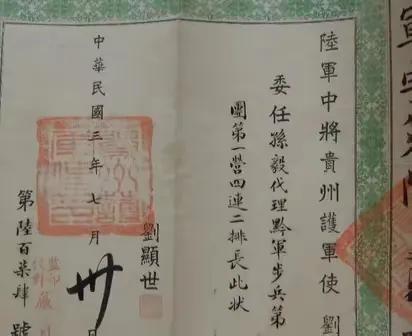 陸軍中將貴州護軍使劉
委任孫毅代理黔軍步兵第
團第一營四連二排長此狀
劉顯世
中華民國三年七月卅日
第陸百柒肆號
監印
校對